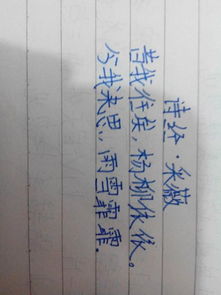 诗经·采薇
昔我往矣，杨柳依依。
今我来思，雨雪霏霏.